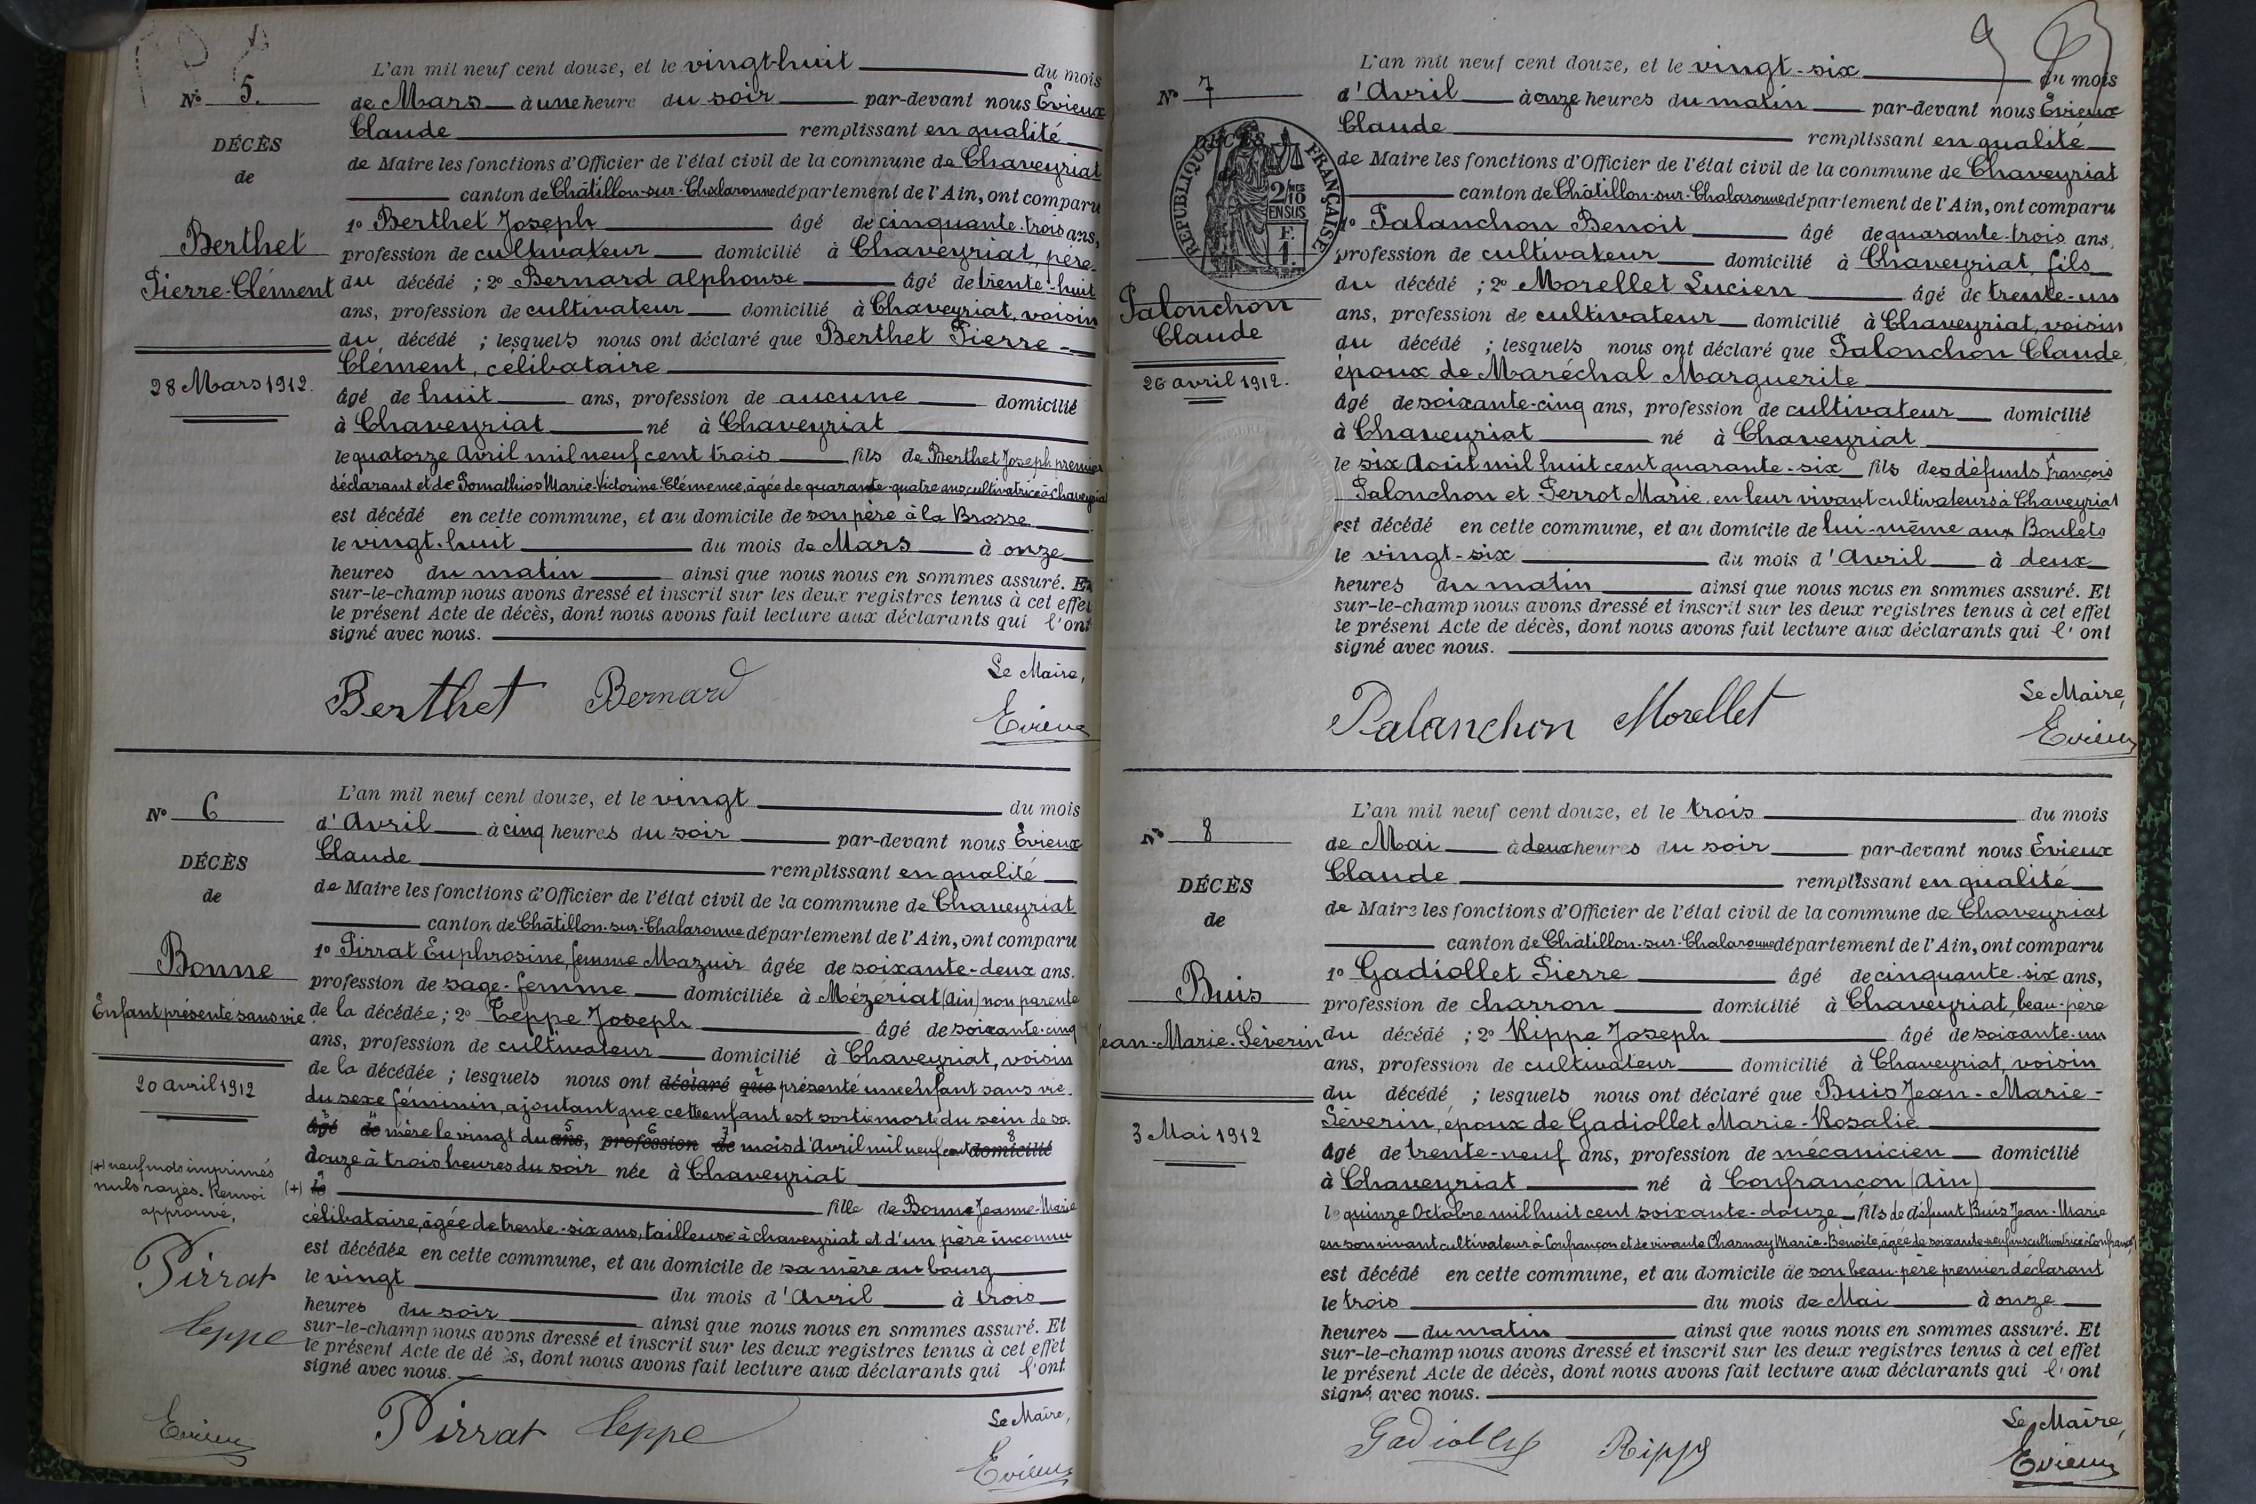 L'an mil neuf cent douze, et le vingt-huit du mois
N° 5.
de Mars à une heure du soir par-devant nous Evieux
Claude remplissant en qualité
DÉCÈS
de Maire les fonctions d'Officier de l'état civil de la commune de Chaveyriat
de
canton de Châtillon-sur-Chalaronne département de l'Ain, ont comparu
1° Berthet Joseph âgé de cinquante-trois ans,
Berthet
profession de cultivateur domicilié à Chaveyriat, père
Pierre-Clément
du décédé ; 2° Bernard Alphonse âgé de trente-huit
ans, profession de cultivateur domicilié à Chaveyriat, voisin
du décédé ; lesquels nous ont déclaré que Berthet Pierre-
Clément, célibataire
28 Mars 1912.
âgé de huit ans, profession de aucune domicilié
à Chaveyriat né à Chaveyriat
le quatorze Avril mil neuf cent trois fils de Berthet Joseph premier
déclarant et de Pomathios Marie-Victorine-Clémence, âgée de quarante-quatre ans cultivatrice à Chaveyriat
est décédé en cette commune, et au domicile de son père à la Brosse
le vingt-huit du mois de Mars à onze
heures du matin ainsi que nous nous en sommes assuré. Et
sur-le-champ nous avons dressé et inscrit sur les deux registres tenus à cet effet
le présent Acte de décès, dont nous avons fait lecture aux déclarants qui l'ont
signé avec nous.
Le Maire,
Berthet Bernard
Evieux
L'an mil neuf cent douze, et le vingt du mois
N° 6
d'Avril à cinq heures du soir par-devant nous Evieux
Claude remplissant en qualité
DÉCÈS
de Maire les fonctions d'Officier de l'état civil de la commune de Chaveyriat
de
canton de Châtillon-sur-Chalaronne département de l'Ain, ont comparu
1° Pirrat Euphrosine, femme Mazuir âgée de soixante-deux ans.
Bonne
profession de sage-femme domiciliée à Mézériat (Ain) non parente
Enfant présenté sans vie
de la décédée ; 2° Teppe Joseph âgé de soixante-cinq
ans, profession de cultivateur domicilié à Chaveyriat, voisin
de la décédée ; lesquels nous ont déclaré que présenté une enfant sans vie
20 avril 1912
du sexe féminin, ajoutant que cette enfant est sortie morte du sein de sa
âgé de mère le vingt du ans, profession de mois d'Avril mil neuf cent domicilié
douze à trois heures du soir née à Chaveyriat
(+) neuf mots imprimés
nuls rayés. Renvoi
approuvé,
(+) le
fille de Bonne Jeanne-Marie
célibataire, âgée de trente-six ans, tailleuse à Chaveyriat et d'un père inconnu
est décédée en cette commune, et au domicile de sa mère au bourg
Pirrat
le vingt du mois d'Avril à trois
heures du soir ainsi que nous nous en sommes assuré. Et
Teppe
sur-le-champ nous avons dressé et inscrit sur les deux registres tenus à cet effet
le présent Acte de décès, dont nous avons fait lecture aux déclarants qui l'ont
signé avec nous.
Le Maire,
Evieux Pirrat Teppe
Evieux
L'an mil neuf cent douze, et le vingt-six du mois
N° 7
d'Avril à onze heures du matin par-devant nous Evieux
Claude remplissant en qualité
DÉCÈS
RÉPUBLIQUE FRANÇAISE
2/10 EN SUS
F. 1.
de Maire les fonctions d'Officier de l'état civil de la commune de Chaveyriat
canton de Châtillon-sur-Chalaronne département de l'Ain, ont comparu
1° Palanchon Benoit âgé de quarante-trois ans,
profession de cultivateur domicilié à Chaveyriat, fils
Palonchon
Claude
du décédé ; 2° Morellet Lucien âgé de trente-un
ans, profession de cultivateur domicilié à Chaveyriat, voisin
du décédé ; lesquels nous ont déclaré que Palonchon Claude
époux de Maréchal Marguerite
26 avril 1912.
âgé de soixante-cinq ans, profession de cultivateur domicilié
à Chaveyriat né à Chaveyriat
le six Août mil huit cent quarante-six fils des défunts François
Palonchon et Perrot Marie en leur vivant cultivateurs à Chaveyriat
est décédé en cette commune, et au domicile de lui-même aux Boulets
le vingt-six du mois d'Avril à deux
heures du matin ainsi que nous nous en sommes assuré. Et
sur-le-champ nous avons dressé et inscrit sur les deux registres tenus à cet effet
le présent Acte de décès, dont nous avons fait lecture aux déclarants qui l'ont
signé avec nous.
Le Maire,
Palanchon Morellet
Evieux
L'an mil neuf cent douze, et le trois du mois
N° 8
de Mai à deux heures du soir par-devant nous Evieux
Claude remplissant en qualité
DÉCÈS
de Maire les fonctions d'Officier de l'état civil de la commune de Chaveyriat
de
canton de Châtillon-sur-Chalaronne département de l'Ain, ont comparu
1° Gadiollet Pierre âgé de cinquante-six ans,
Buis
profession de charron domicilié à Chaveyriat, beau-père
Jean-Marie-Séverin
du décédé ; 2° Rippe Joseph âgé de soixante-un
ans, profession de cultivateur domicilié à Chaveyriat, voisin
du décédé ; lesquels nous ont déclaré que Buis Jean-Marie-
Séverin, époux de Gadiollet Marie-Rosalie
3 Mai 1912
âgé de trente-neuf ans, profession de mécanicien domicilié
à Chaveyriat né à Confrançon (Ain)
le quinze Octobre mil huit cent soixante-douze fils de défunt Buis Jean-Marie
en son vivant cultivateur à Confrançon et de vivante Charnay Marie-Benoite, âgée de soixante-neuf ans cultivatrice à Confrançon
est décédé en cette commune, et au domicile de son beau-père premier déclarant
le trois du mois de Mai à onze
heures du matin ainsi que nous nous en sommes assuré. Et
sur-le-champ nous avons dressé et inscrit sur les deux registres tenus à cet effet
le présent Acte de décès, dont nous avons fait lecture aux déclarants qui l'ont
signé avec nous.
Le Maire,
Gadiollet Rippe
Evieux